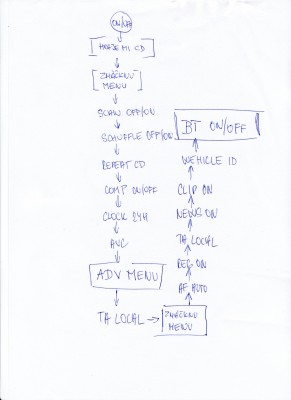 ON/OFF
HRAJE MI CD
ZMÁČKNU
MENU
SCAN OFF/ON
SCHUFFLE OFF/ON
REPEAT CD
COMP ON/OFF
CLOCK 24H
AVC
ADV MENU
TA LOCAL
ZMÁČKNU
MENU
AF AUTO
REG ON
TA LOCAL
NEWS ON
CLIP ON
WEHICLE ID
BT ON/OFF